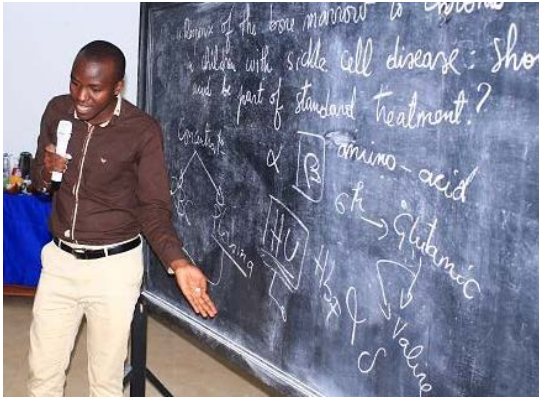 Response of the bone marrow to chronic
in children with sickle cell disease: Sho
and be part of standard treatment?
α β amino-acid
6th → Glutamic
HU
Valine
S